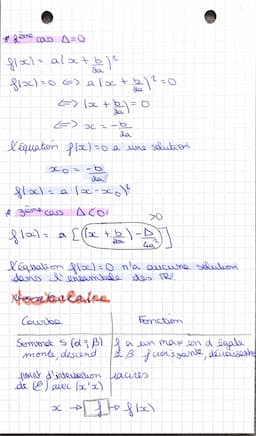 * 2ème cas Δ=0
f(x) = a(x + b/2a)²
f(x)=0 <=> a(x + b/2a)² = 0
<=> (x + b/2a) = 0
<=> x = -b/2a
l'équation f(x)=0 a une solution
x₀ = -b/2a
f(x) = a (x-x₀)²
* 3ème cas Δ<0
>0
f(x) = a [(x + b/2a)² - Δ/4a²]
l'équation f(x)=0 n'a aucune solution
dans l'ensemble des ℝ
Vocabulaire
Courbe Fonction
Sommet S (α ; β) f a un max en α égale
monte, descend à β f croissante, décroissante
point d'intersection racines
de (ℓ) avec (x'x)
x → f → f(x)